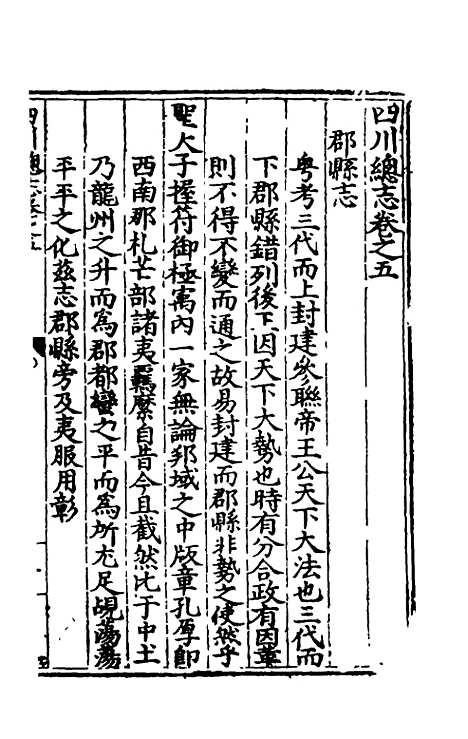 四川總志卷之五
郡縣志
粤考三代而上封建參聯帝王公天下大法也三代而
下郡縣錯列後世因天下大勢也時有分合政有因革
則不得不變而通之故易封建而郡縣非勢之使然乎
聖天子握符御極寓內一家無論邦域之中版章孔厚即
西南那札芒部諸夷羈縻自昔今且截然比于中土
乃龍州之升而爲郡都蠻之平而爲所尤足覘蕩蕩
平平之化玆志郡縣旁及夷服用彰
四川總志卷之五